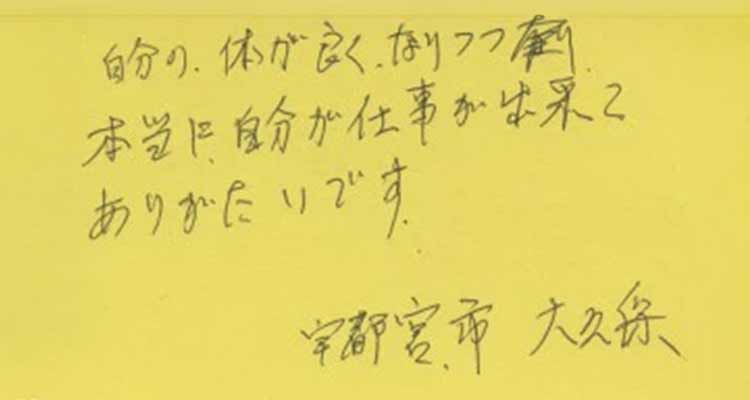 自分の、体が良く、なりつつ有り、
本当に、自分が仕事が出来て
ありがたいです。
宇都宮市 大久保